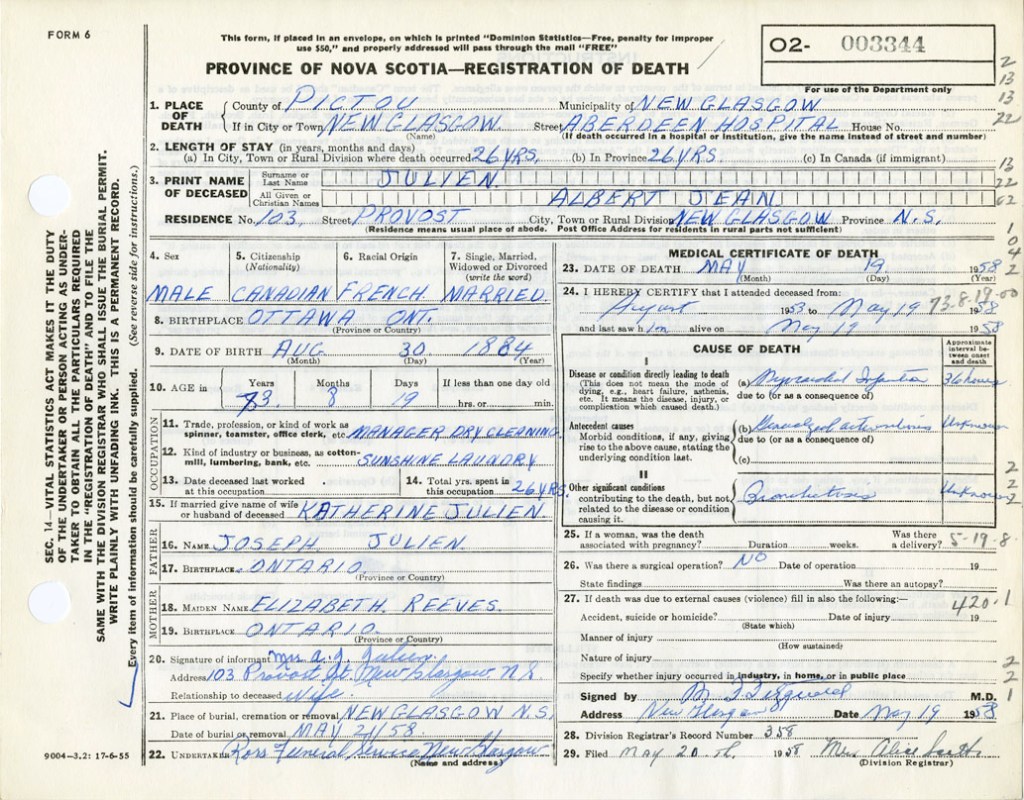 FORM 6
This form, if placed in an envelope, on which is printed "Dominion Statistics—Free, penalty for improper
use $50," and properly addressed will pass through the mail "FREE"
PROVINCE OF NOVA SCOTIA—REGISTRATION OF DEATH
O2- 003344
For use of the Department only
1. PLACE OF DEATH
County of PICTOU Municipality of NEW GLASGOW
If in City or Town NEW GLASGOW. Street ABERDEEN HOSPITAL House No.
(Name) (If death occurred in a hospital or institution, give the name instead of street and number)
2. LENGTH OF STAY (in years, months and days)
(a) In City, Town or Rural Division where death occurred 26 YRS. (b) In Province 26 YRS. (c) In Canada (if immigrant)
3. PRINT NAME OF DECEASED
Surname or Last Name JULIEN.
All Given or Christian Names ALBERT JEAN.
RESIDENCE No. 103. Street PROVOST City, Town or Rural Division NEW GLASGOW Province N.S.
(Residence means usual place of abode. Post Office Address for residents in rural parts not sufficient)
4. Sex
MALE
5. Citizenship (Nationality)
CANADIAN
6. Racial Origin
FRENCH
7. Single, Married, Widowed or Divorced (write the word)
MARRIED.
8. BIRTHPLACE OTTAWA ONT.
(Province or Country)
9. DATE OF BIRTH AUG 30 1884
(Month) (Day) (Year)
10. AGE in Years Months Days If less than one day old
73. 8 19 hrs. or min.
OCCUPATION
11. Trade, profession, or kind of work as spinner, teamster, office clerk, etc. MANAGER DRY CLEANING
12. Kind of industry or business, as cotton-mill, lumbering, bank, etc. SUNSHINE LAUNDRY
13. Date deceased last worked at this occupation
14. Total yrs. spent in this occupation 26 YRS.
15. If married give name of wife or husband of deceased KATHERINE JULIEN.
FATHER
16. NAME JOSEPH JULIEN.
17. BIRTHPLACE ONTARIO.
(Province or Country)
MOTHER
18. MAIDEN NAME ELIZABETH. REEVES.
19. BIRTHPLACE ONTARIO.
(Province or Country)
20. Signature of informant Mrs A. J. Julien.
Address 103 Provost St. New Glasgow N.S.
Relationship to deceased Wife.
21. Place of burial, cremation or removal NEW GLASGOW N.S.
Date of burial or removal MAY 21/58.
22. UNDERTAKER Ross Funeral Service New Glasgow
(Name and address)
MEDICAL CERTIFICATE OF DEATH
23. DATE OF DEATH MAY 19 1958
(Month) (Day) (Year)
24. I HEREBY CERTIFY that I attended deceased from:
August 1953 to May 19 1958
73.8.19-00
and last saw him alive on May 19 1958
CAUSE OF DEATH
Approximate interval between onset and death
I
Disease or condition directly leading to death
(This does not mean the mode of dying, e.g., heart failure, asthenia, etc. It means the disease, injury, or complication which caused death.)
(a) Myocardial Infarction 36 hours
due to (or as a consequence of)
Antecedent causes
Morbid conditions, if any, giving rise to the above cause, stating the underlying condition last.
(b) Generalized arteriosclerosis Unknown
due to (or as a consequence of)
(c)
II
Other significant conditions
contributing to the death, but not related to the disease or condition causing it.
Unknown
25. If a woman, was the death associated with pregnancy? Duration weeks. Was there a delivery?
5-19-8
26. Was there a surgical operation? NO Date of operation 19
State findings Was there an autopsy?
27. If death was due to external causes (violence) fill in also the following:—
420.1
Accident, suicide or homicide? Date of injury 19
(State which)
Manner of injury
(How sustained)
Nature of injury
Specify whether injury occurred in industry, in home, or in public place
Signed by M.D.
Address New Glasgow Date May 19 1958
28. Division Registrar's Record Number 358
29. Filed MAY 20.th. 1958 Mrs Alice
(Division Registrar)
SEC. 14—VITAL STATISTICS ACT MAKES IT THE DUTY
OF THE UNDERTAKER OR PERSON ACTING AS UNDER-
TAKER TO OBTAIN ALL THE PARTICULARS REQUIRED
IN THE "REGISTRATION OF DEATH" AND TO FILE THE
SAME WITH THE DIVISION REGISTRAR WHO SHALL ISSUE THE BURIAL PERMIT.
WRITE PLAINLY WITH UNFADING INK. THIS IS A PERMANENT RECORD.
Every item of information should be carefully supplied. (See reverse side for instructions.)
9004—3.2: 17-6-55
2
13
13
22
13
22
02
10
4
2
2
2
2
1
2
2
1